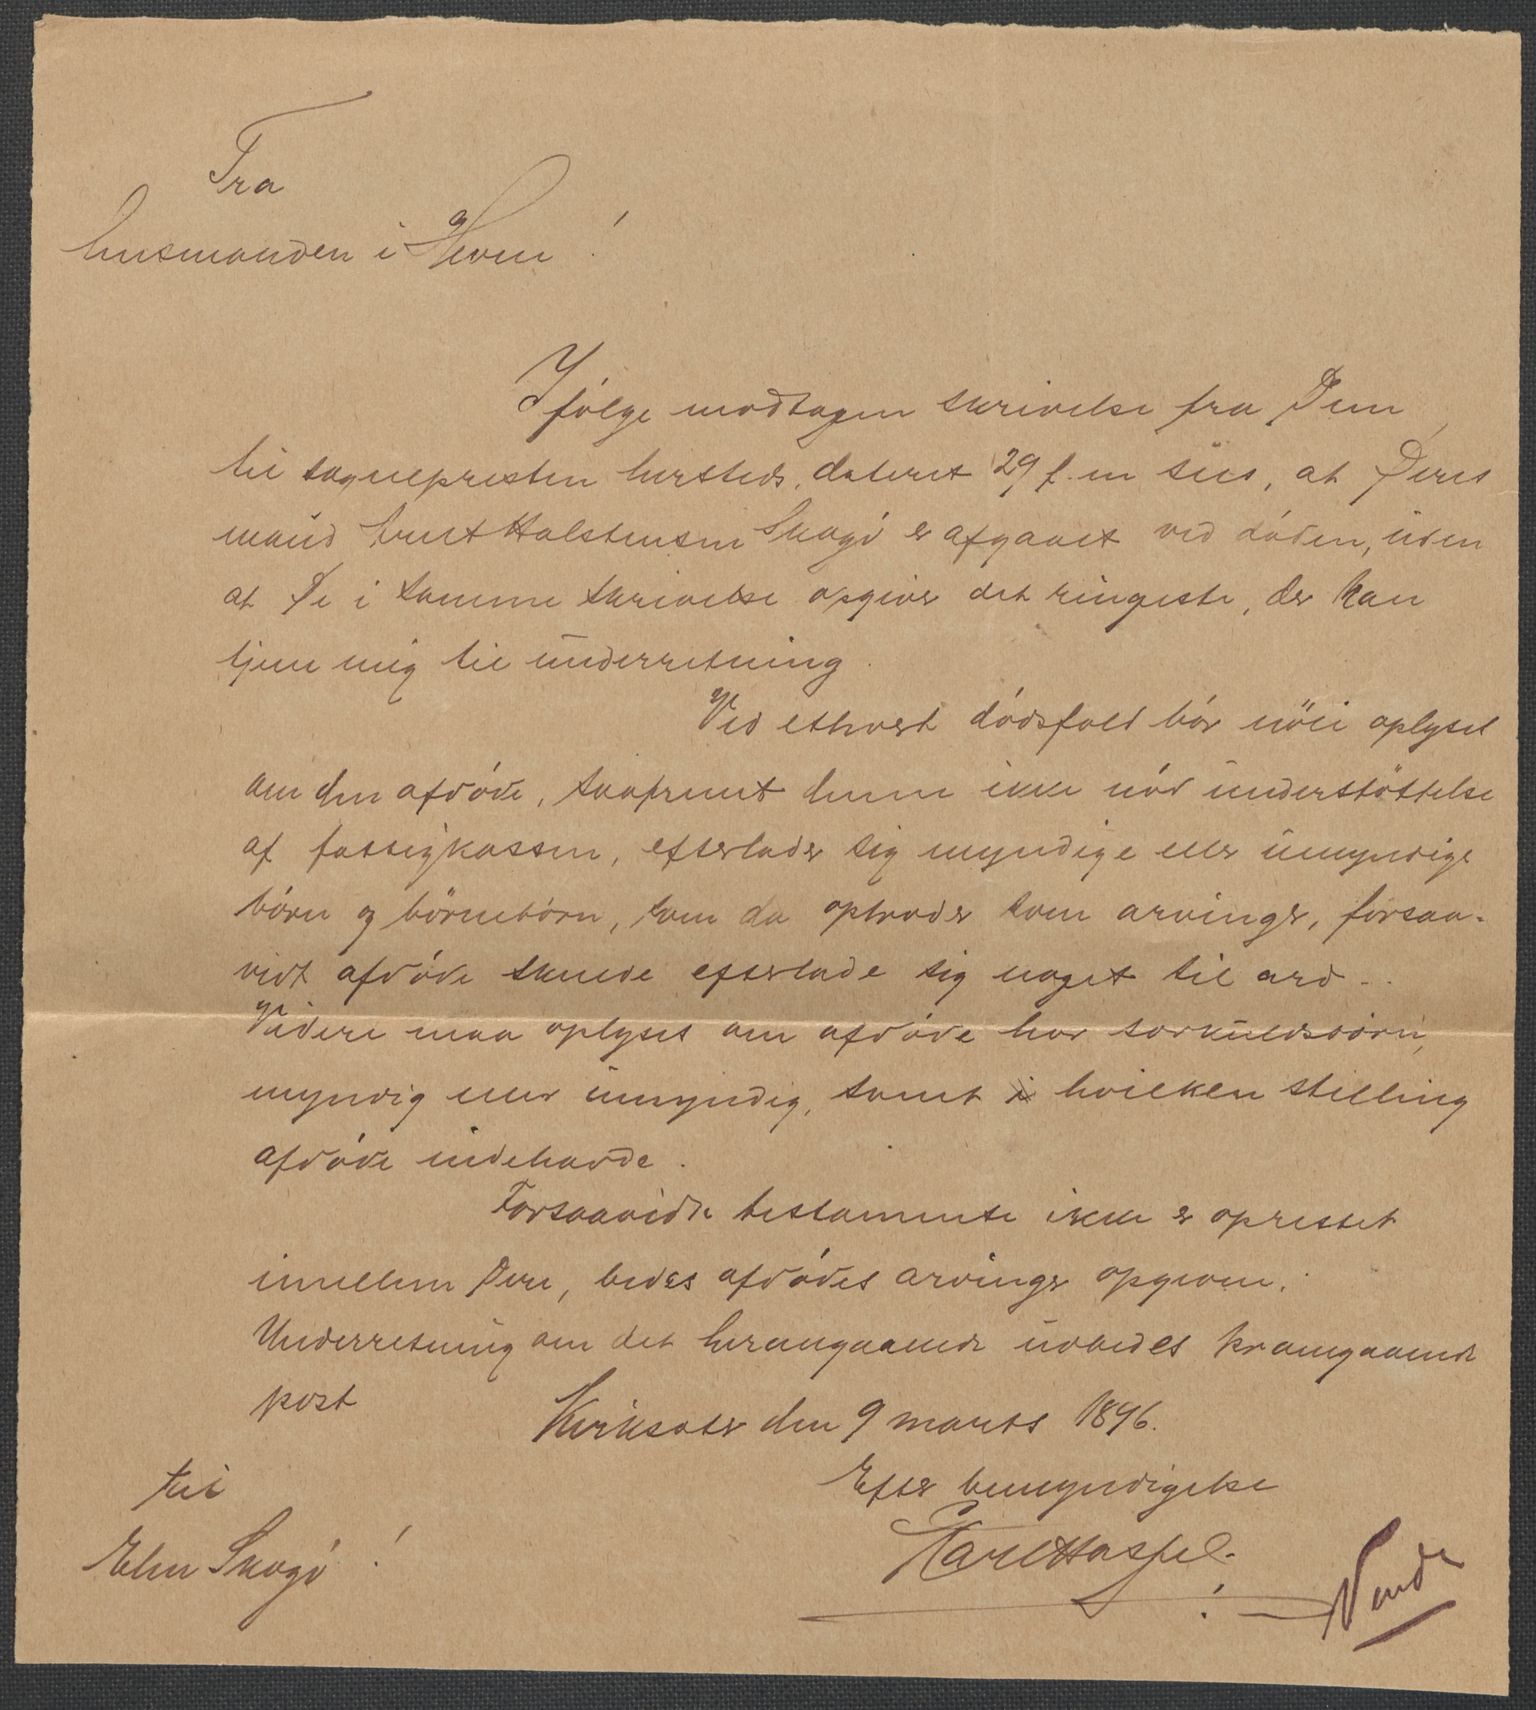 Fra
lensmanden i Hevne!
Ifølge modtagen skrivelse fra Dem
til sognepresten hersteds, dateret 29 f.m. sees, at Deres
mand Halstensen Skagø er afgaaet ved døden, uden
at De i samme skrivelse opgiver det ringeste, der kan
tjene mig til underretning.
Ved ethvert dødsfald bør nøie oplyses
om den afdøde, saafremt denne ikke nød understøttelse
af fattigkassen, efterlader sig myndige eller umyndige
børn og børnebørn, som da optræder som arvinger, forsaa-
vidt afdøde skulde efterlade sig noget til arv.
Videre maa oplyses om afdøde har særkuldsbørn,
myndig eller umyndig, samt i hvilken stilling
afdøde indehavde.
Forsaavidt testamente ikke er oprettet
imellem Dere, bedes afdødes arvinger opgivne.
Underretning om det heromgaaende udbedes fremgaaende
post
Kirksæter den 9 marts 1896.
Efter bemyndigelse
Karl Hassel.
til
Elen Skagø!
Vende